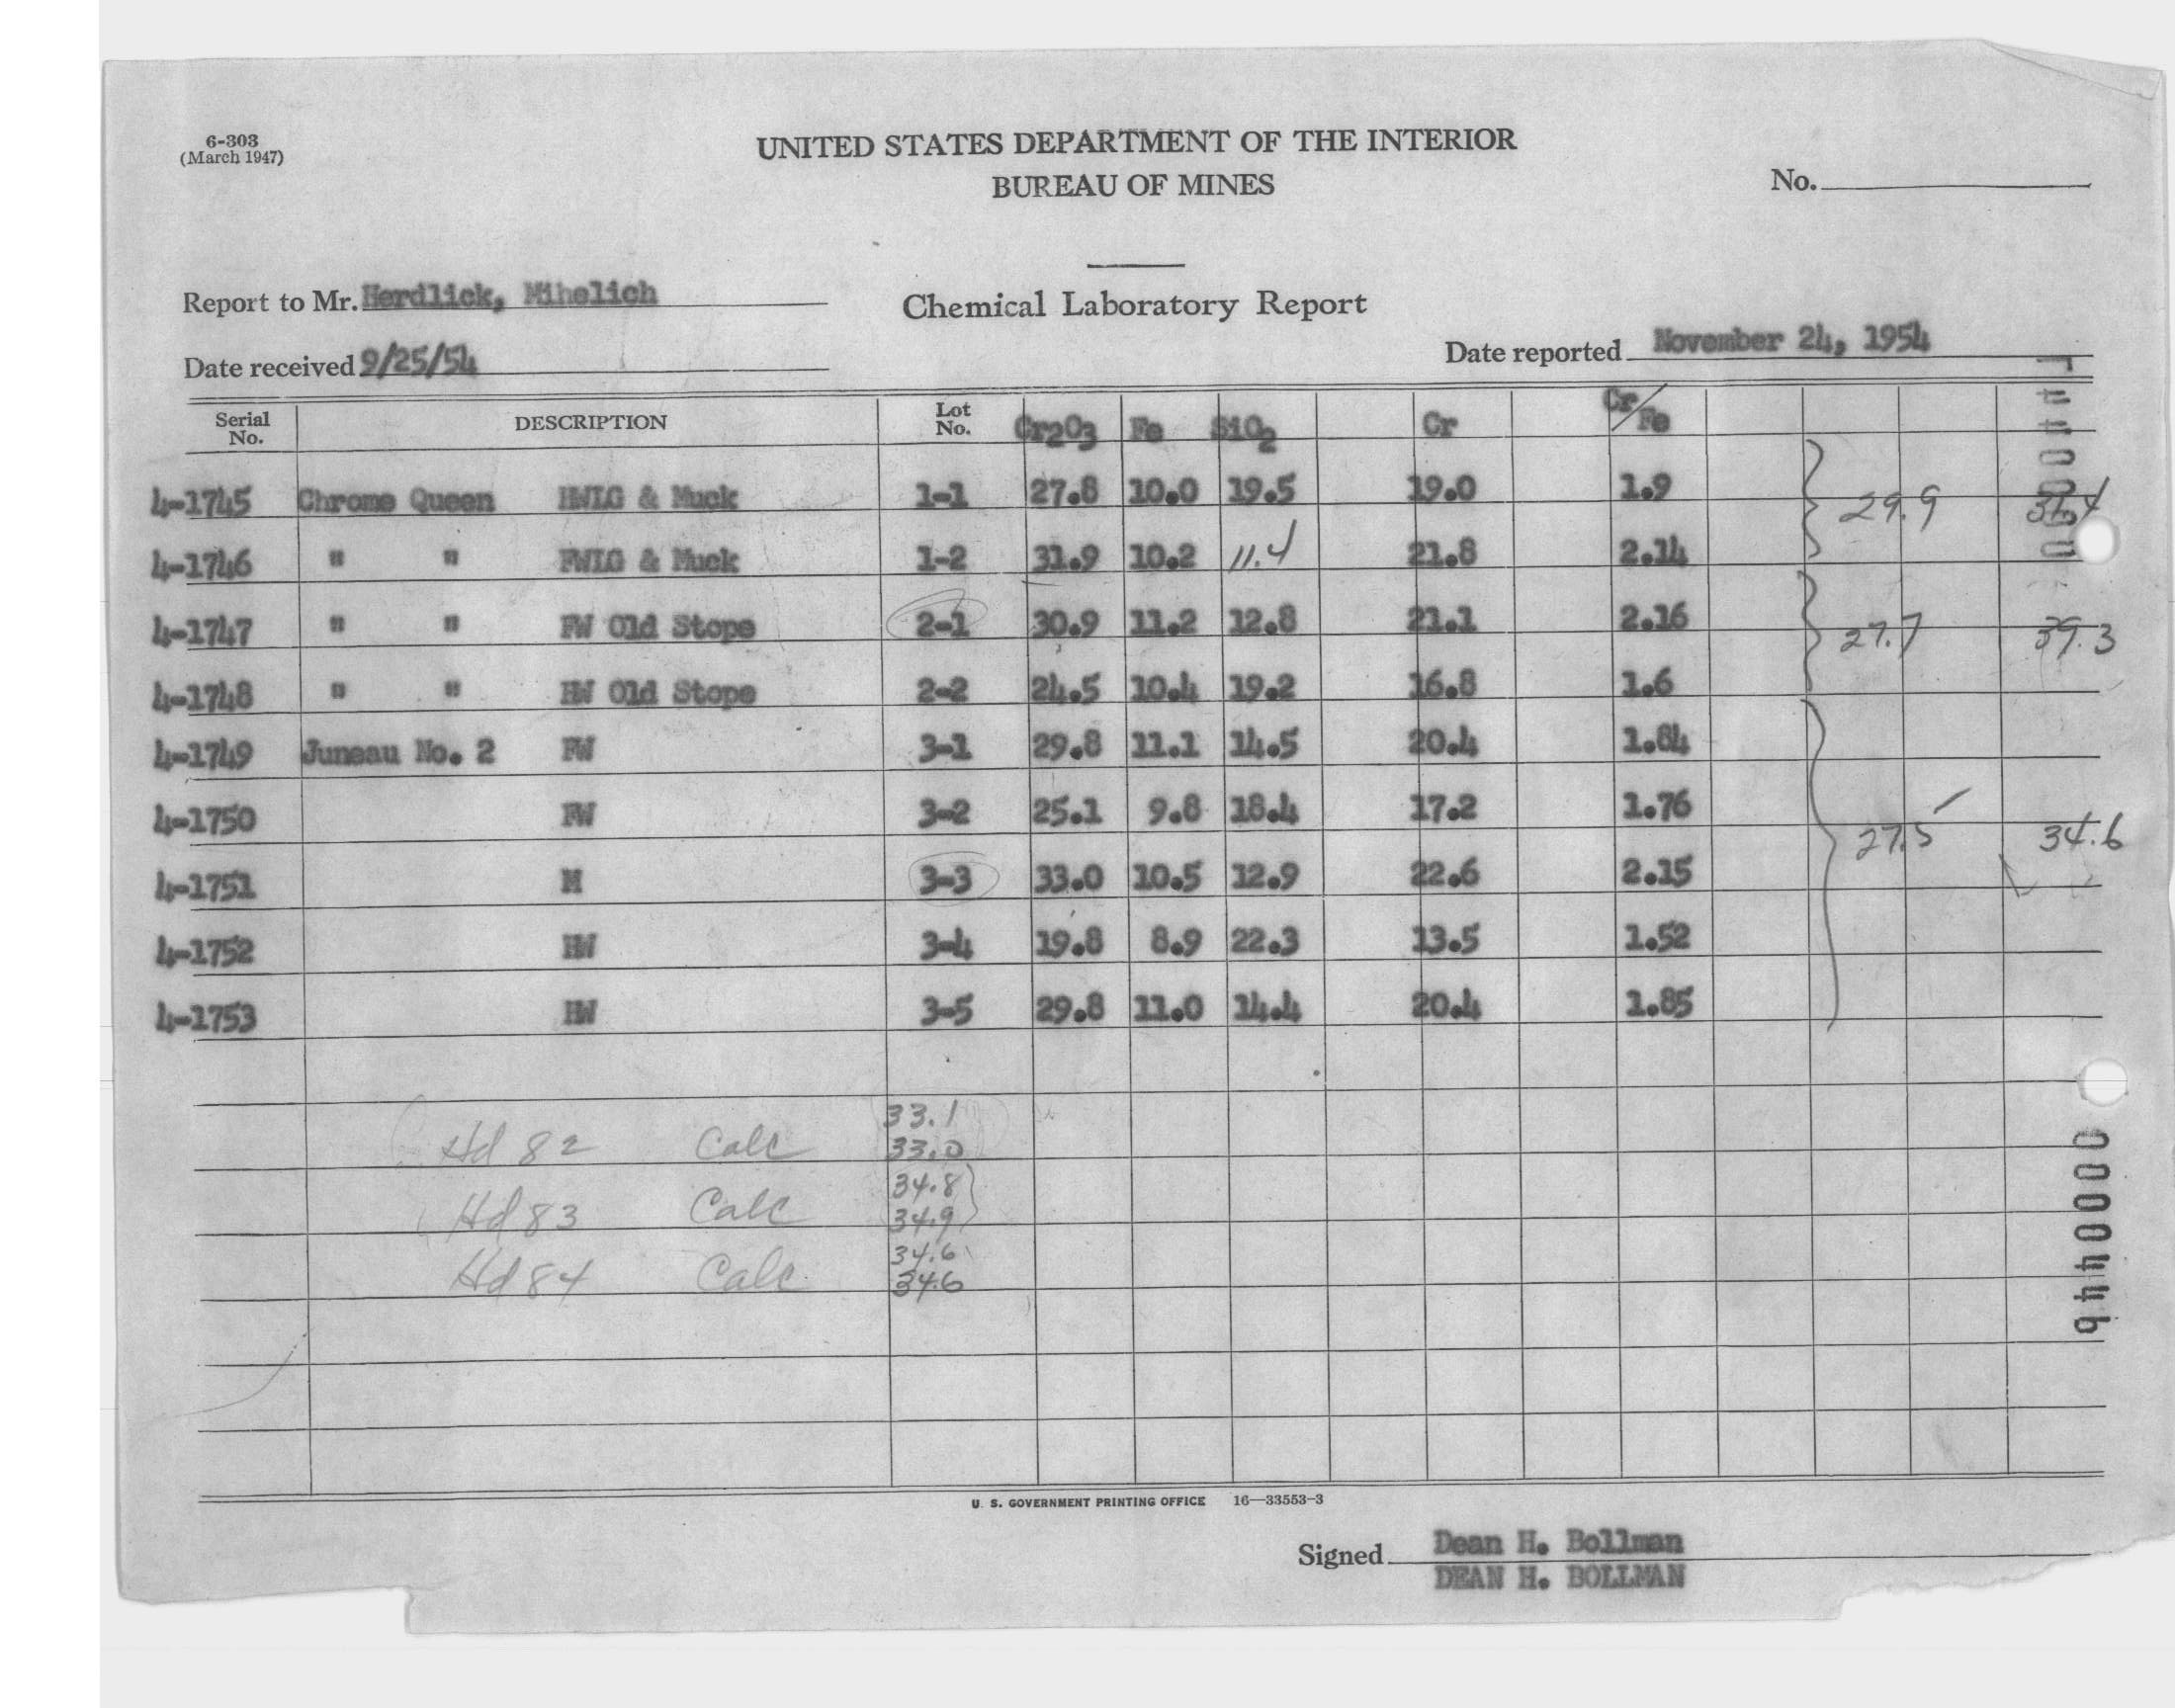 6-303
(March 1947)
UNITED STATES DEPARTMENT OF THE INTERIOR
BUREAU OF MINES
No.
Report to Mr. Herdlick, Mihelich
Chemical Laboratory Report
Date received 9/25/54
Date reported November 24, 1954
Serial No. DESCRIPTION Lot No. Cr2O3 Fe SiO2 Cr Cr/Fe
4-1745 Chrome Queen HWLG & Muck 1-1 27.8 10.0 19.5 19.0 1.9
29.9
4-1746 " " FWLG & Muck 1-2 31.9 10.2 11.4 21.8 2.14
4-1747 " " FW Old Stope 2-1 30.9 11.2 12.8 21.1 2.16
27.7 39.3
4-1748 " " HW Old Stope 2-2 24.5 10.4 19.2 16.8 1.6
4-1749 Juneau No. 2 FW 3-1 29.8 11.1 14.5 20.4 1.84
4-1750 FW 3-2 25.1 9.8 18.4 17.2 1.76
27.5 34.6
4-1751 M 3-3 33.0 10.5 12.9 22.6 2.15
4-1752 HW 3-4 19.8 8.9 22.3 13.5 1.52
4-1753 HW 3-5 29.8 11.0 14.4 20.4 1.85
33.1
Hd 82 Calc 33.0
34.8
Hd 83 Calc 34.9
34.6
Hd 84 Calc 34.6
U. S. GOVERNMENT PRINTING OFFICE 16—33553-3
Signed Dean H. Bollman
DEAN H. BOLLMAN